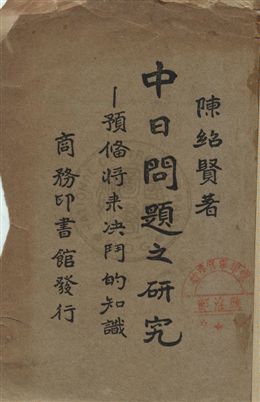 陳紹賢著
中日問題之研究
—預備将来决鬥的知識
商務印書館發行